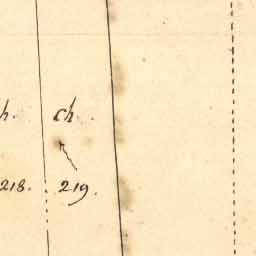 h. ch.
218. 219.